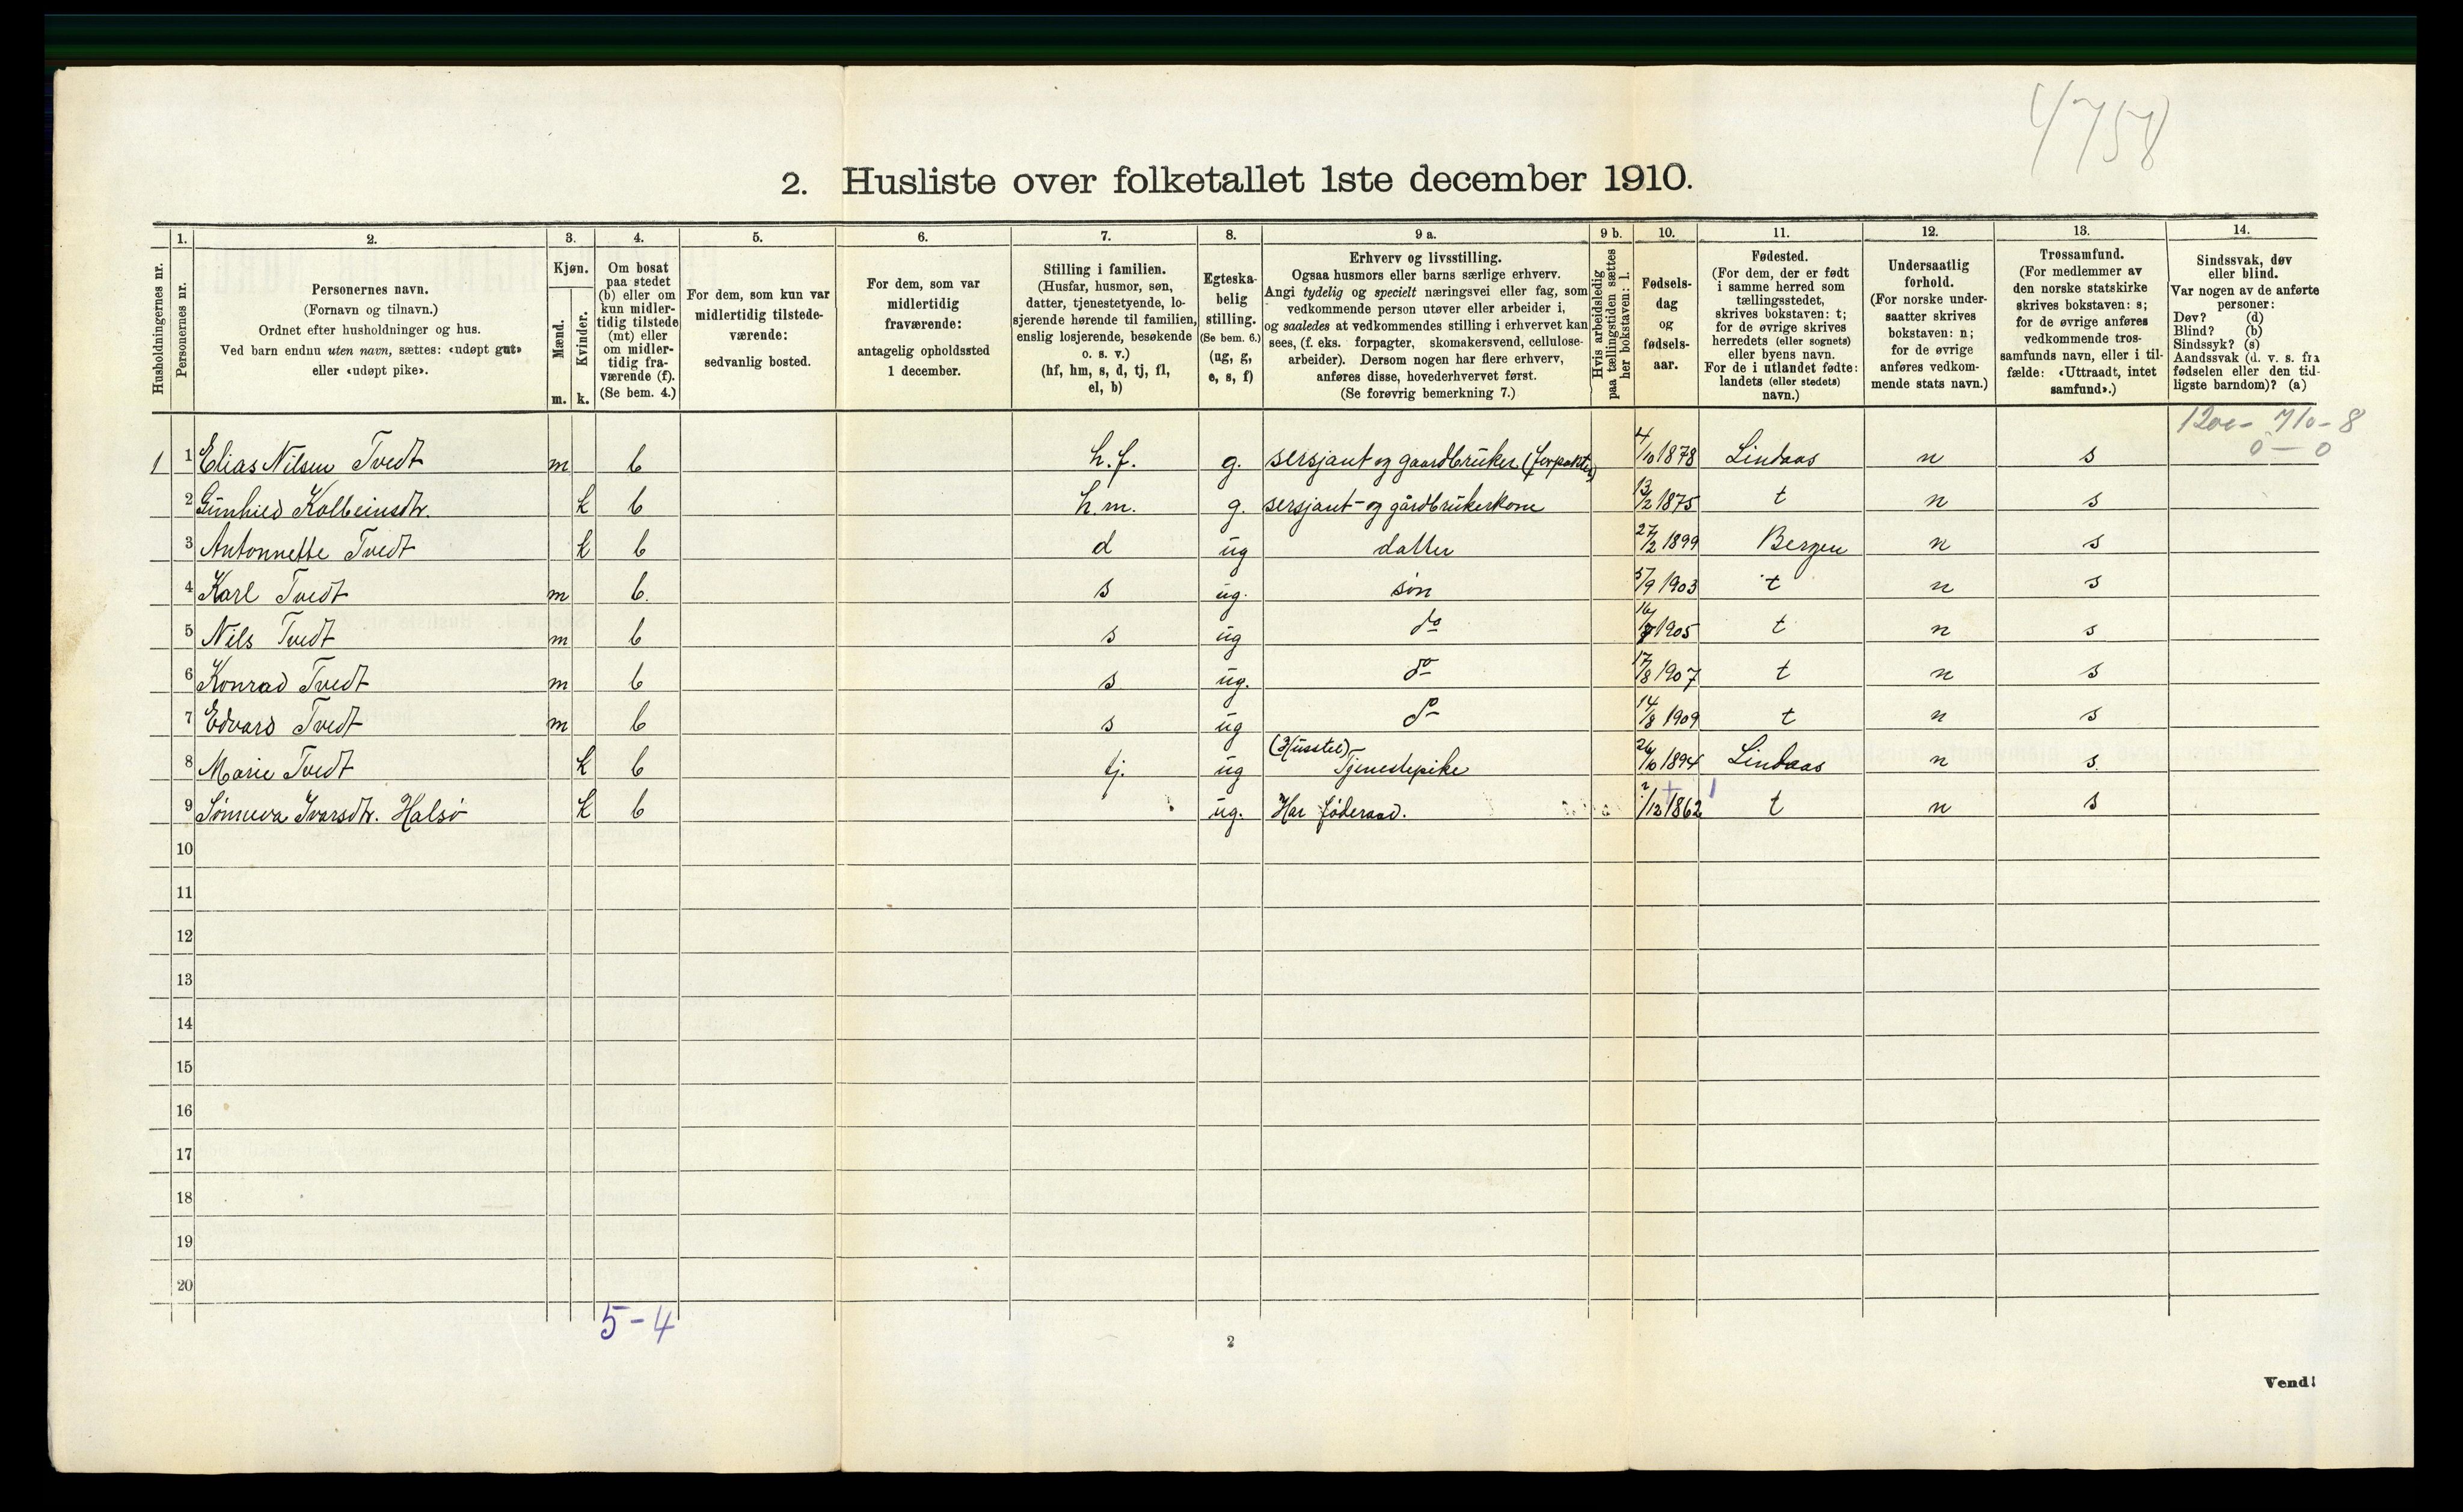 4758
2. Husliste over folketallet 1ste december 1910.
Husholdningernes nr.
1.
Personernes nr.
2.
Personernes navn.
(Fornavn og tilnavn.)
Ordnet efter husholdninger og hus.
Ved barn endnu uten navn, sættes: «udøpt gut»
eller «udøpt pike».
3.
Kjøn.
Mænd.
Kvinder.
m. k.
4.
Om bosat
paa stedet
(b) eller om
kun midler-
tidig tilstede
(mt) eller
om midler-
tidig fra-
værende (f).
(Se bem. 4.)
5.
For dem, som kun var
midlertidig tilstede-
værende:
sedvanlig bosted.
6.
For dem, som var
midlertidig
fraværende:
antagelig opholdssted
1 december.
7.
Stilling i familien.
(Husfar, husmor, søn,
datter, tjenestetyende, lo-
sjerende hørende til familien,
enslig losjerende, besøkende
o. s. v.)
(hf, hm, s, d, tj, fl,
el, b)
8.
Egteska-
belig
stilling.
(Se bem. 6.)
(ug, g,
e, s, f)
9 a.
Erhverv og livsstilling.
Ogsaa husmors eller barns særlige erhverv.
Angi tydelig og specielt næringsvei eller fag, som
vedkommende person utøver eller arbeider i,
og saaledes at vedkommendes stilling i erhvervet kan
sees, (f. eks. forpagter, skomakersvend, cellulose-
arbeider). Dersom nogen har flere erhverv,
anføres disse, hovederhvervet først.
(Se forøvrig bemerkning 7.)
9 b.
Hvis arbeidsledig
paa tællingstiden sættes
her bokstaven: l.
10.
Fødsels-
dag
og
fødsels-
aar.
11.
Fødested.
(For dem, der er født
i samme herred som
tællingsstedet,
skrives bokstaven: t;
for de øvrige skrives
herredets (eller sognets)
eller byens navn.
For de i utlandet fødte:
landets (eller stedets)
navn.)
12.
Undersaatlig
forhold.
(For norske under-
saatter skrives
bokstaven: n;
for de øvrige
anføres vedkom-
mende stats navn.)
13.
Trossamfund.
(For medlemmer av
den norske statskirke
skrives bokstaven: s;
for de øvrige anføres
vedkommende tros-
samfunds navn, eller i til-
fælde: «Uttraadt, intet
samfund».)
14.
Sindssvak, døv
eller blind.
Var nogen av de anførte
personer:
Døv? (d)
Blind? (b)
Sindssyk? (s)
Aandssvak (d. v. s. fra
fødselen eller den tid-
ligste barndom)? (a)
1200 - 710 - 8
0 - 0
1 1 Elias Nilsen Tvedt m b h.f. g. sersjant og gaardbruker (forpakter) 4/10 1878 Lindaas n s
2 Gunhild Kolbeinsdtr. k b h.m. g. sersjant- og gårdbrukerkone 13/2 1875 t n s
3 Antonnette Tvedt k b d ug datter 27/2 1899 Bergen n s
4 Karl Tvedt m b. s ug. søn 5/9 1903 t n s
5 Nils Tvedt m b s ug do 16/7 1905 t n s
6 Konrad Tvedt m b s ug. do 17/8 1907 t n s
7 Edvard Tvedt m b s ug do 14/8 1909 t n s
8 Marie Tvedt k b tj. ug (Husstel) Tjenestepike 26/10 1894 Lindaas n s.
9 Sønneva Ivarsdtr. Halsø k b ug. Har føderaad. /12 1862 t n s
10
11
12
13
14
15
16
17
18
19
20
5-4
2
Vend!